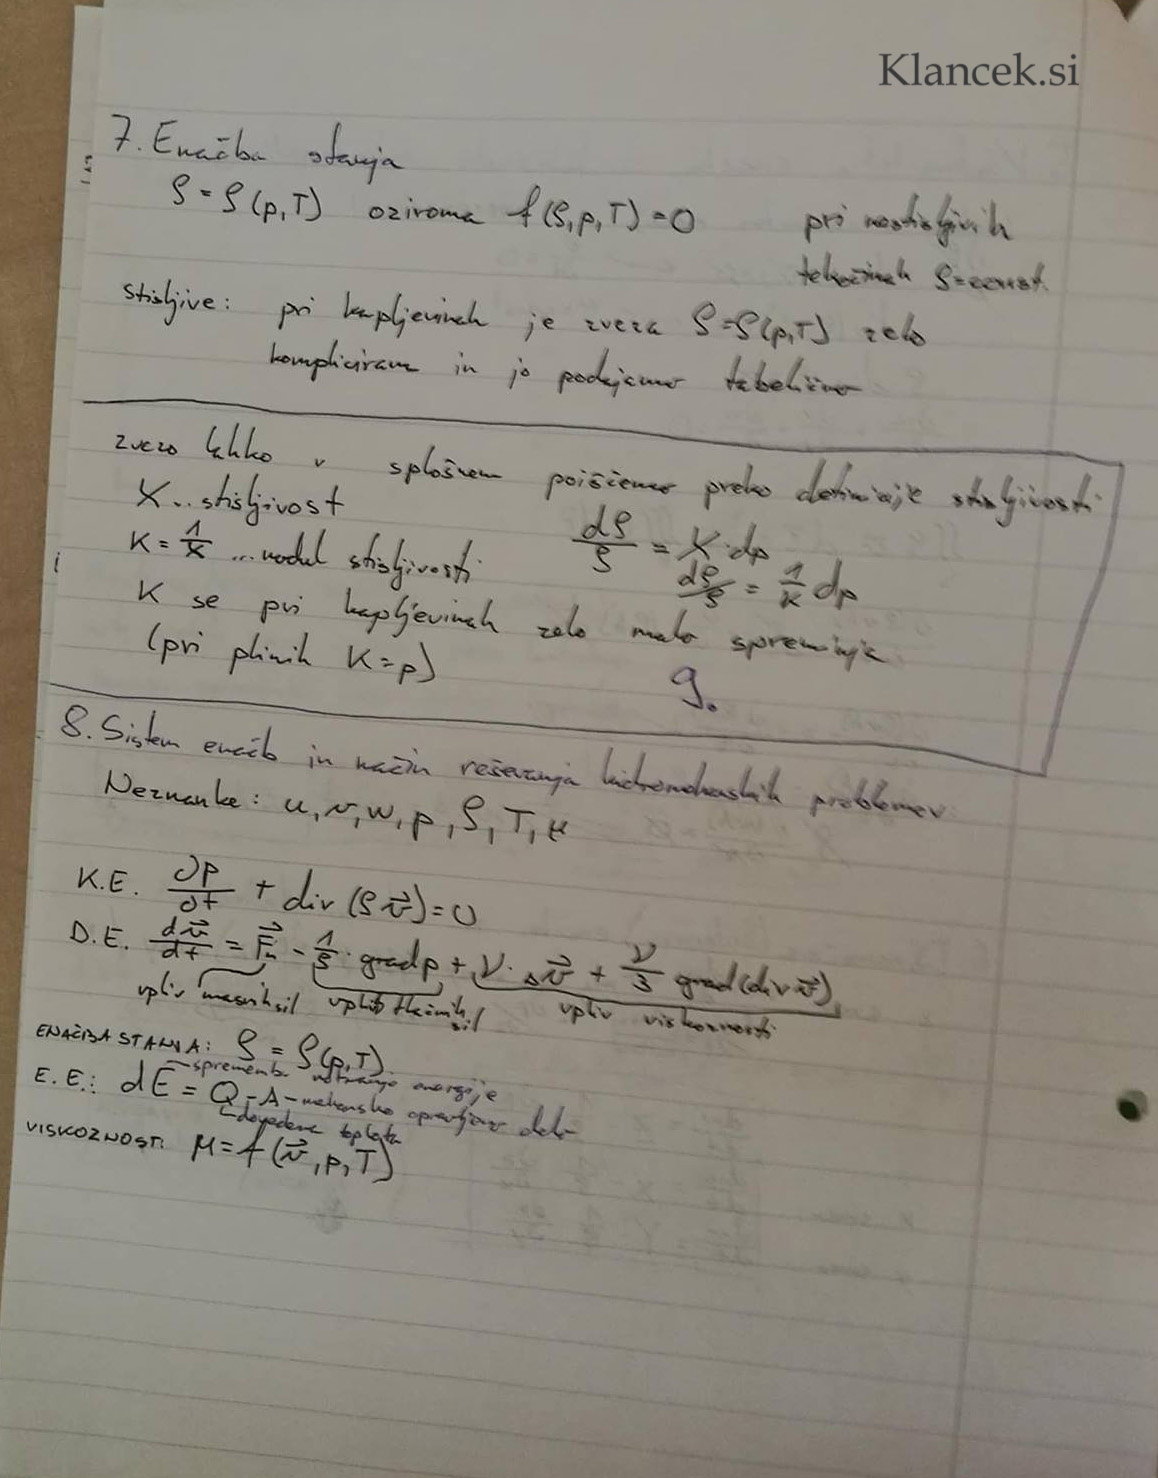 Klancek.si
7. Enačba stanja
ρ = ρ(p,T) oziroma f(ρ,p,T) = 0
pri nestisljivih
tekočinah ρ=const.
stisljive: pri kapljevinah je zveza ρ=ρ(p,T) zelo
komplicirana in jo podajamo tabelično
zvezo lahko v splošnem poiščemo preko definicije stisljivosti
X.. stisljivost
dρ/ρ = X·dp
K = 1/X ... modul stisljivosti
dρ/ρ = 1/K dp
K se pri kapljevinah zelo malo spreminja
(pri plinih K=p)
9.
8. Sistem enačb in način reševanja hidromehanskih problemov
Neznanke: u, v, w, p, ρ, T, μ
K.E. ∂ρ/∂t + div (ρ v⃗) = 0
D.E. dv⃗/dt = F⃗m - 1/ρ · grad p + ν · Δv⃗ + ν/3 grad(div v⃗)
vpliv masnih sil vpliv tlačnih sil vpliv viskoznosti
ENAČBA STANJA: ρ = ρ(p,T)
sprememba notranje energije
E.E.: dE = Q - A - mehansko opravljeno delo
dovedena toplota
VISKOZNOST: μ = f(v⃗, p, T)